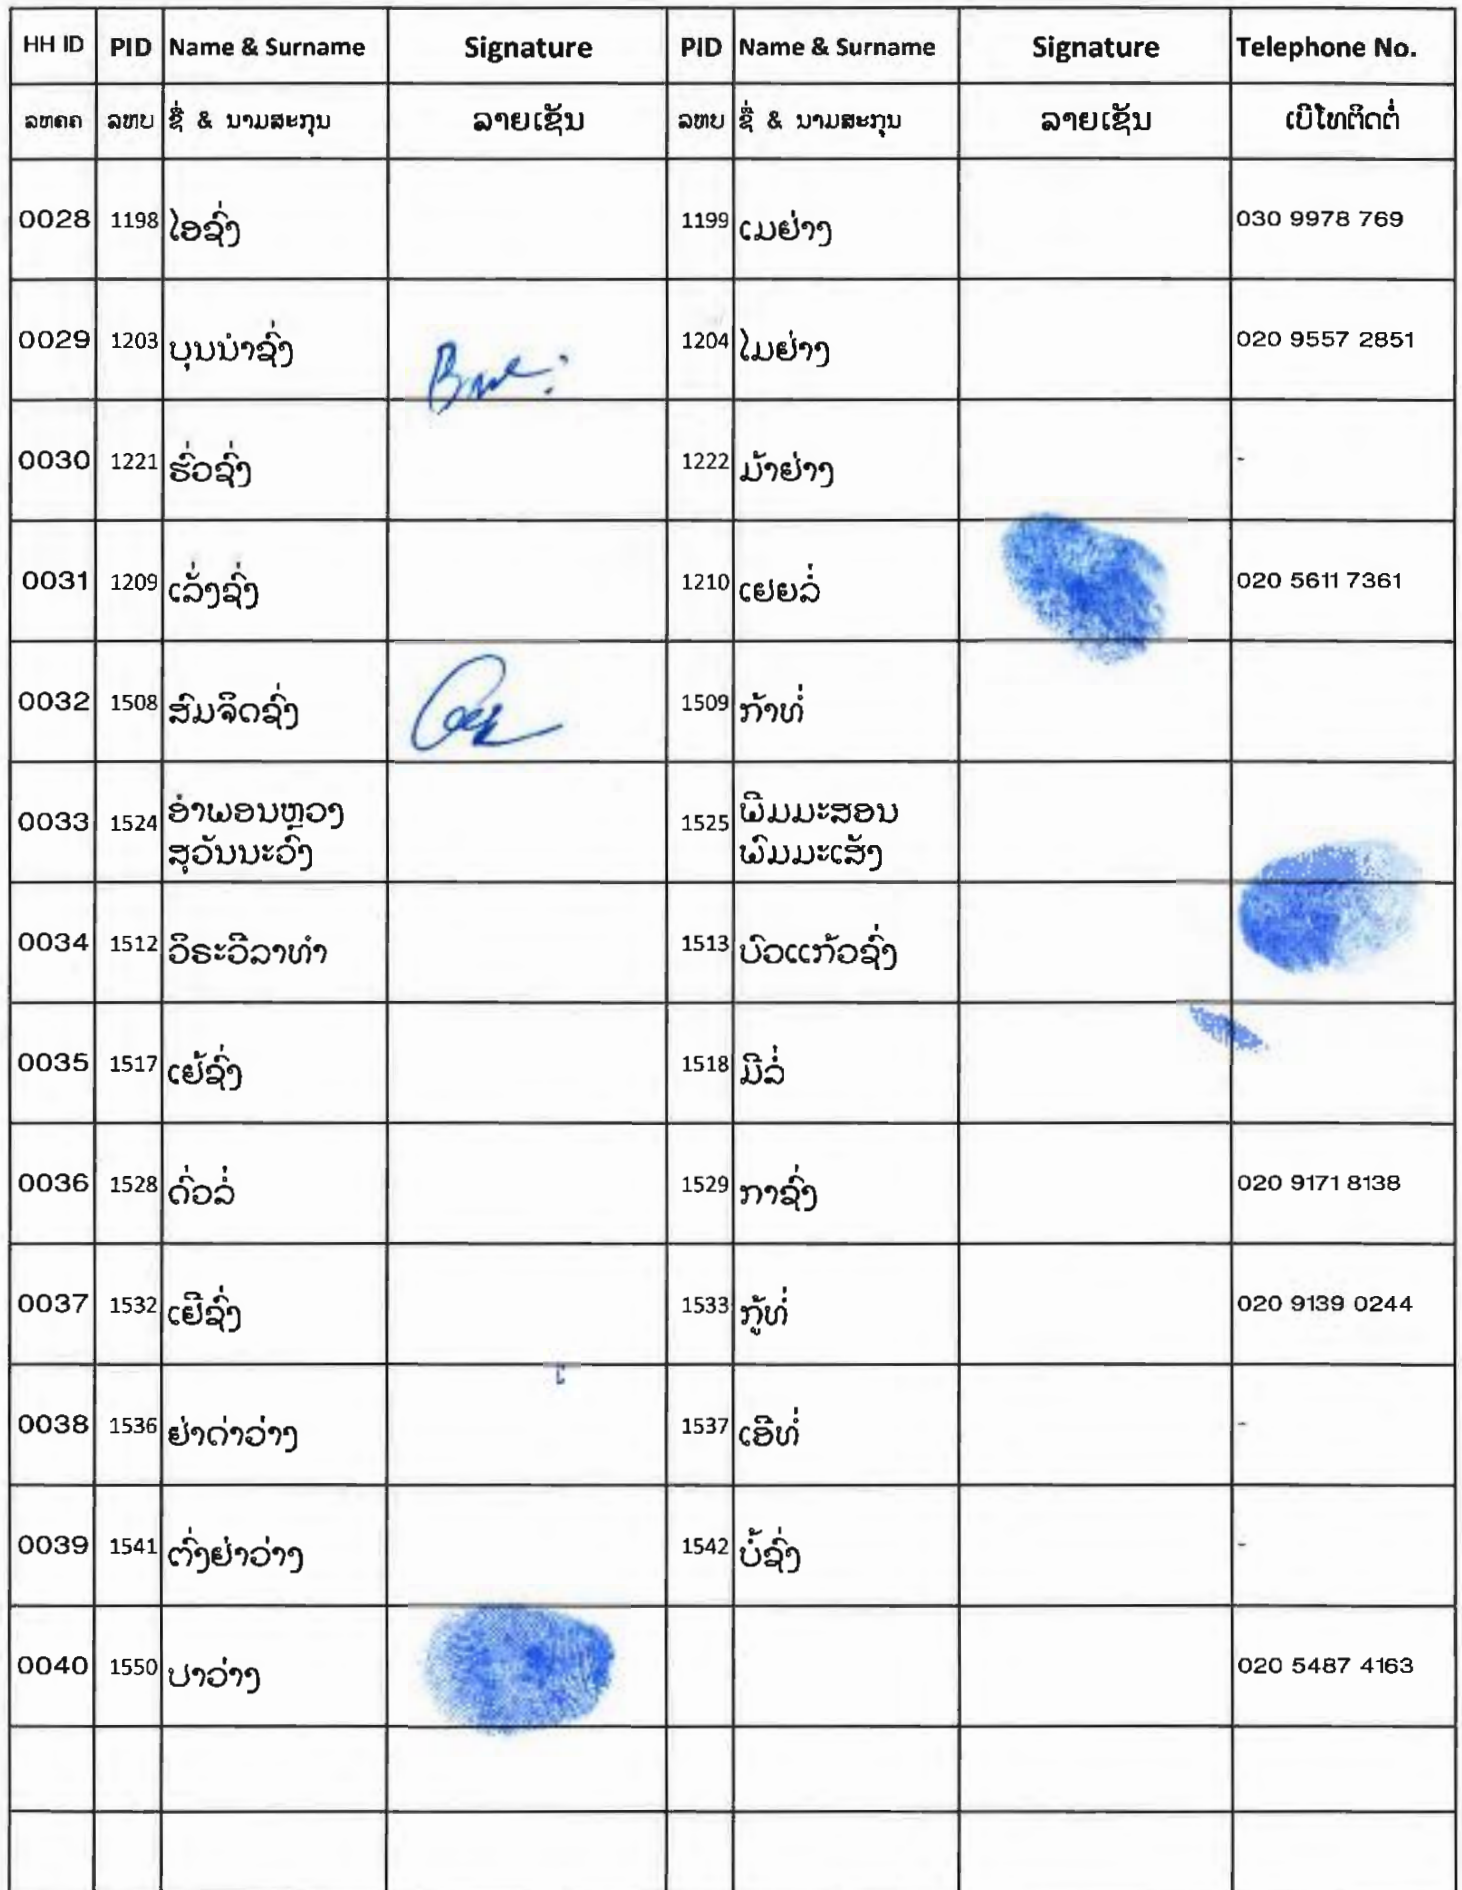 HH ID PID Name & Surname Signature PID Name & Surname Signature Telephone No.
ລຫຄຄ ລຫບ ຊື່ & ນາມສະກຸນ ລາຍເຊັນ ລຫບ ຊື່ & ນາມສະກຸນ ລາຍເຊັນ ເບີໂທຕິດຕໍ່
0028 1198 ໄອຊົ່ງ 1199 ເມຢ່າງ 030 9978 769
0029 1203 ບຸນນຳຊົ່ງ 1204 ໄມຢ່າງ 020 9557 2851
0030 1221 ຮົ່ວຊົ່ງ 1222 ມ້າຢ່າງ -
0031 1209 ເລັ່ງຊົ່ງ 1210 ເຢຍລໍ່ 020 5611 7361
0032 1508 ສົມຈິດຊົ່ງ 1509 ກ້າທໍ່
0033 1524 ອຳພອນຫຼວງ 1525 ພິມມະສອນ
ສຸວັນນະວົງ ພົມມະເສັ້ງ
0034 1512 ວິຣະວິລາທຳ 1513 ບົວແກ້ວຊົ່ງ
0035 1517 ເຢັ້ຊົ່ງ 1518 ມີລໍ່
0036 1528 ດົ່ວລໍ່ 1529 ກາຊົ່ງ 020 9171 8138
0037 1532 ເຢີຊົ່ງ 1533 ກູ້ທໍ່ 020 9139 0244
0038 1536 ຢ່າດ່າວ່າງ 1537 ເອີທໍ່ -
0039 1541 ຕົ່ງຢ່າວ່າງ 1542 ບໍ້ຊົ່ງ -
0040 1550 ປາວ່າງ 020 5487 4163